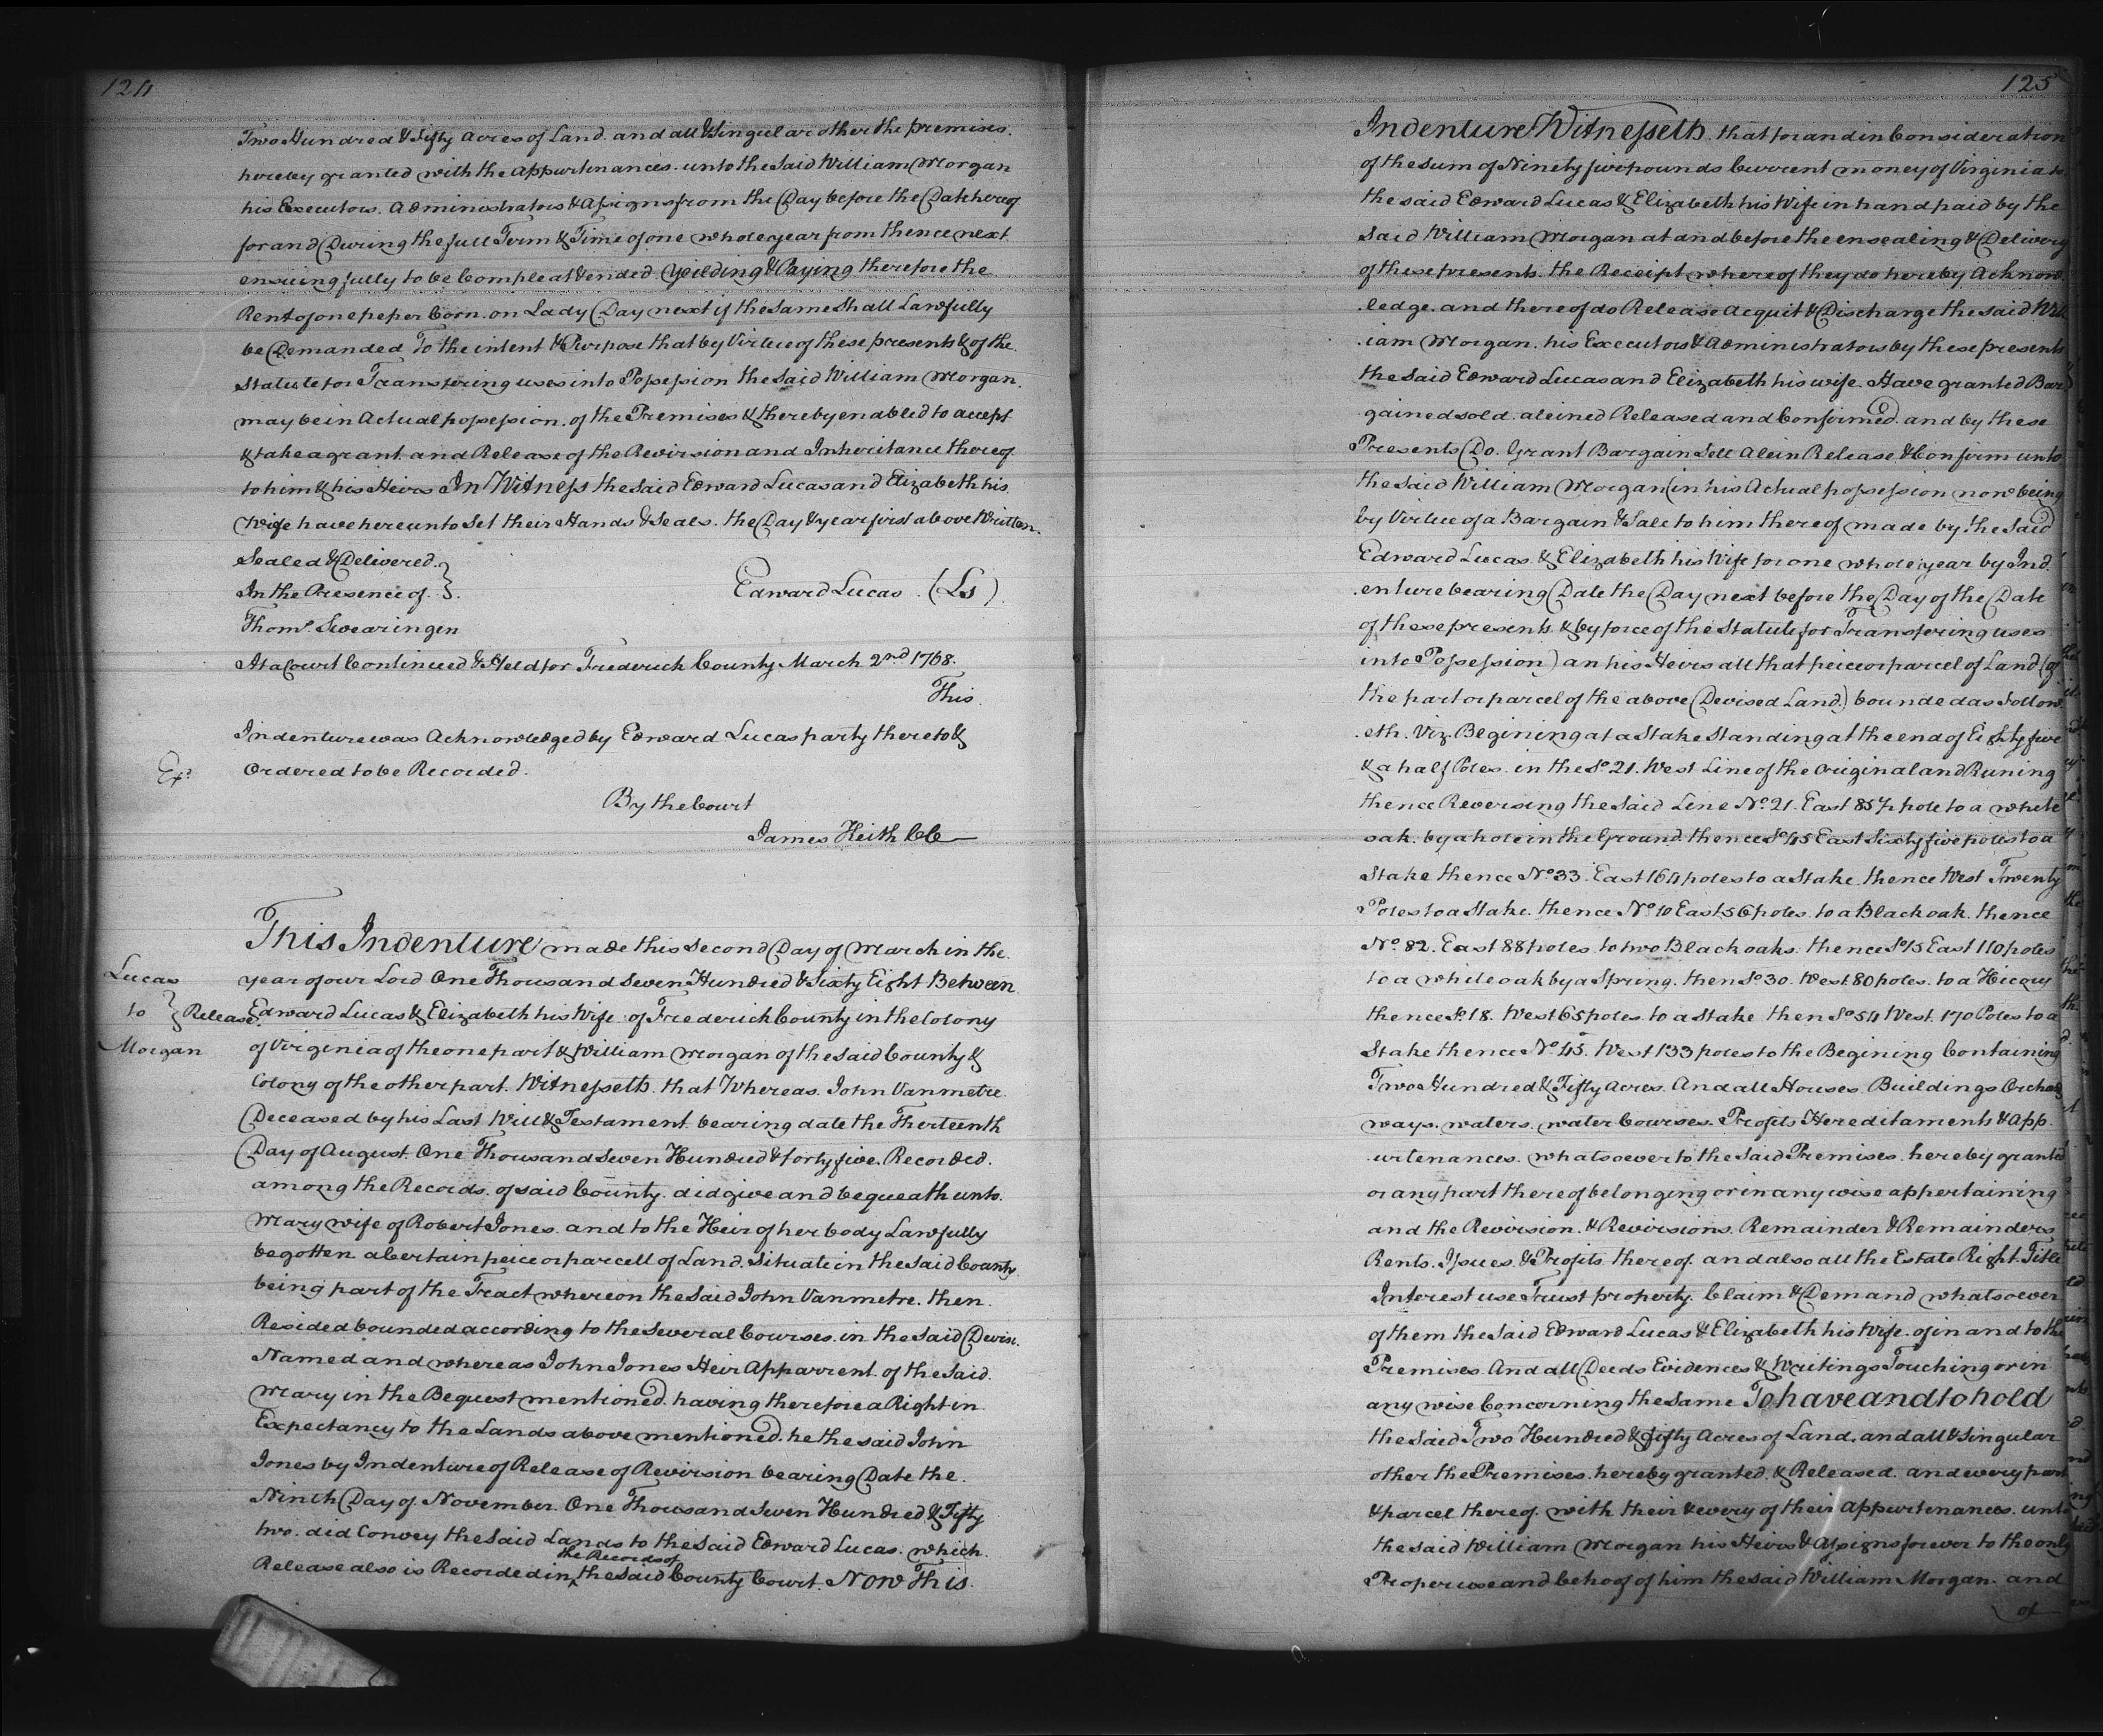 124
Two Hundred & Fifty Acres of Land. and all & Singular other the premises.
hereby granted with the Appurtinances. unto the Said William Morgan
his Executors. Administrators & Assigns from the Day before the Date hereof
for and During the full Term & Time of one whole year from thence next
ensuing fully to be Compleat & ended Yeilding & Paying therefore the
Rent of one peper Corn. on Lady Day next if the Same Shall Lawfully
be Demanded To the intent & Purpose that by Virtue of these presents & of the
Statute for Transfering uses into Possession the Said William Morgan.
may be in Actual possession. of the Premises & thereby enabled to accept
& take a grant. and Release of the Revirsion and Inheritance thereof
to him & his Heirs In Witness the Said Edward Lucas and Elizabeth his
Wife have hereunto Set their Hands & Seals. the Day & year first above Written.
Sealed & Delivered.
In the Presence of. } Edward Lucas. (Ls).
Thoms. Swearingen
At a Court Continued & Held for Frederick County March 2nd 1768.
This
Indenture was Acknowledged by Edward Lucas party thereto &
Ordered to be Recorded.
By the Court
James Keith CC
This Indenture made this Second Day of March in the.
Lucas
to } Release.
Morgan
year of our Lord One Thousand Seven Hundred & Sixty Eight Between
Edward Lucas & Elizabeth his Wife. of Frederick County in the Colony
of Virginia of the one part & William Morgan of the Said County &
Colony of the other part. Witnesseth. that Whereas. John Vanmetre
Deceased by his Last Will & Testament. bearing date the Therteenth
Day of August. One Thousand Seven Hundred & forty five. Recorded.
among the Records. of said County. did give and bequeath unto.
Mary wife of Robert Jones. and to the Heir of her body Lawfully
begotten. a Certain peice or parcell of Land. Situate in the Said County
being part of the Tract whereon the Said John Vanmetre. then.
Resided bounded according to the Several Courses. in the Said Devise.
Named and whereas John Jones Heir Apparrent. of the Said.
Mary in the Bequest mentioned. having therefore a Right in
Expectancy to the Lands above mentioned. he the said John
Jones by Indenture of Release of Revirsion bearing Date the.
Ninth Day of November. One Thousand Seven Hundred & Fifty
two. did Convey the Said Lands to the Said Edward Lucas. which.
Release also is Recorded in ^the Records of the Said County Court. Now This
125
Indenture Witnesseth. that for and in Consideration
of the Sum of Ninety five pounds Current money of Virginia to
the said Edward Lucas & Elizabeth his Wife in hand paid by the
Said William Morgan at and before the ensealing & Delivery
of these presents. the Receipt whereof they do hereby Acknow
.ledge. and thereof do Release Acquit & Discharge the said Will
.iam Morgan. his Executors & Administrators by these presents
the Said Edward Lucas and Elizabeth his wife. Have granted Bar
gained sold. aleined Released and Confirmed. and by these
Presents Do. Grant Bargain Sell Alein Release & Confirm unto
the Said William Morgan (in his Actual possession now being
by Virtue of a Bargain & Sale to him thereof made by. the Said
Edward Lucas & Elizabeth his Wife for one whole year by Ind.
.enture bearing Date the Day next before the Day of the Date
of these presents & by force of the Statute for Transfering uses
into Possession) an his Heirs all that peice or parcel of Land (of
the part or parcel of the above Devised Land.) bounded as Follow
.eth. Viz. Begining at a Stake Standing at the end of Eighty five
& a half Poles. in the So. 21. West Line of the original and Runing
thence Reversing the Said Line No. 21. East 85½ pole to a white
oak. by a hole in the Ground. thence So. 45 East Sixty five poles to a
Stake thence No. 33. East 164 poles to a Stake. thence West Twenty
Poles to a Stake. thence No. 10 East 56 poles. to a Black oak. thence
No. 82. East 88 poles. to two Black oaks. thence So. 15 East 110 poles
to a white oak by a Spring. then So. 30. West. 80 poles. to a Hicory
thence So. 18. West 65 poles. to a Stake then So. 54 West. 170 Poles to a
Stake thence No. 45. West 133 poles to the Begining Containing
Two Hundred & Fifty Acres. And all Houses. Buildings Orchards
ways. waters. water Courses. Profits Hereditaments & App.
.urtenances. whatsoever to the Said Premises. hereby granted
or any part thereof belonging or in any wise appertaining
and the Revirsion. & Revirsions. Remainder & Remainders
Rents. Issues. & Profits. thereof. and also all the Estate Right. Title
Interest use Trust property. Claim & Demand whatsoever
of them the Said Edward Lucas & Elizabeth his Wife. of in and to the
Premises. And all Deeds Evidences & Writings Touching or in
any wise Concerning the Same To have and to hold
the Said Two Hundred & Fifty Acres of Land. and all & Singular
other the Premises. hereby granted. & Released. and every part
& parcel thereof. with their & every of their Appurtinances. unto
the Said William Morgan his Heirs & Assigns forever to the only
Proper use and behoof of him the said William Morgan. and
of